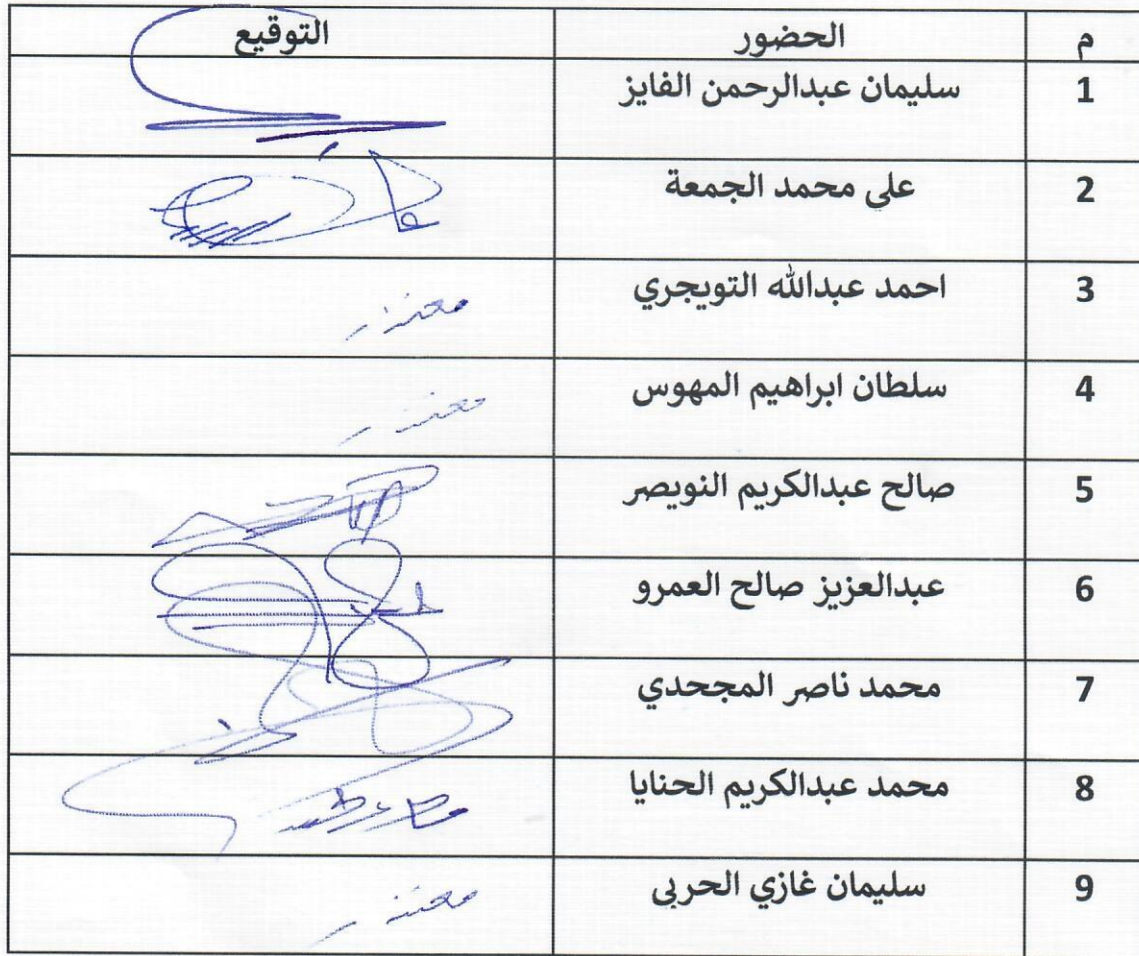 م الحضور التوقيع
1 سليمان عبدالرحمن الفايز
2 على محمد الجمعة
3 احمد عبدالله التويجري معتذر
4 سلطان ابراهيم المهوس معتذر
5 صالح عبدالكريم النويصر
6 عبدالعزيز صالح العمرو
7 محمد ناصر المجحدي
8 محمد عبدالكريم الحنايا
9 سليمان غازي الحربى معتذر